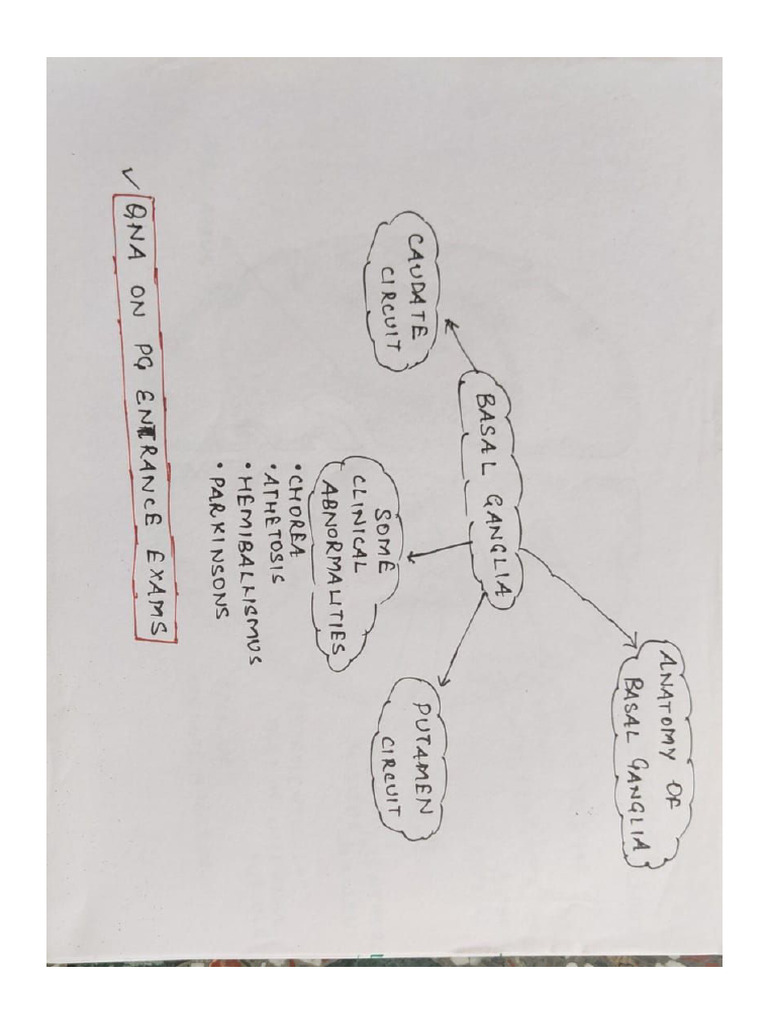 ANATOMY OF
BASAL GANGLIA
BASAL GANGLIA
CAUDATE
CIRCUIT
SOME
CLINICAL
ABNORMALITIES
• CHOREA
• ATHETOSIS
• HEMIBALLISMUS
• PARKINSONS
PUTAMEN
CIRCUIT
✓ QNA ON PG ENTRANCE EXAMS